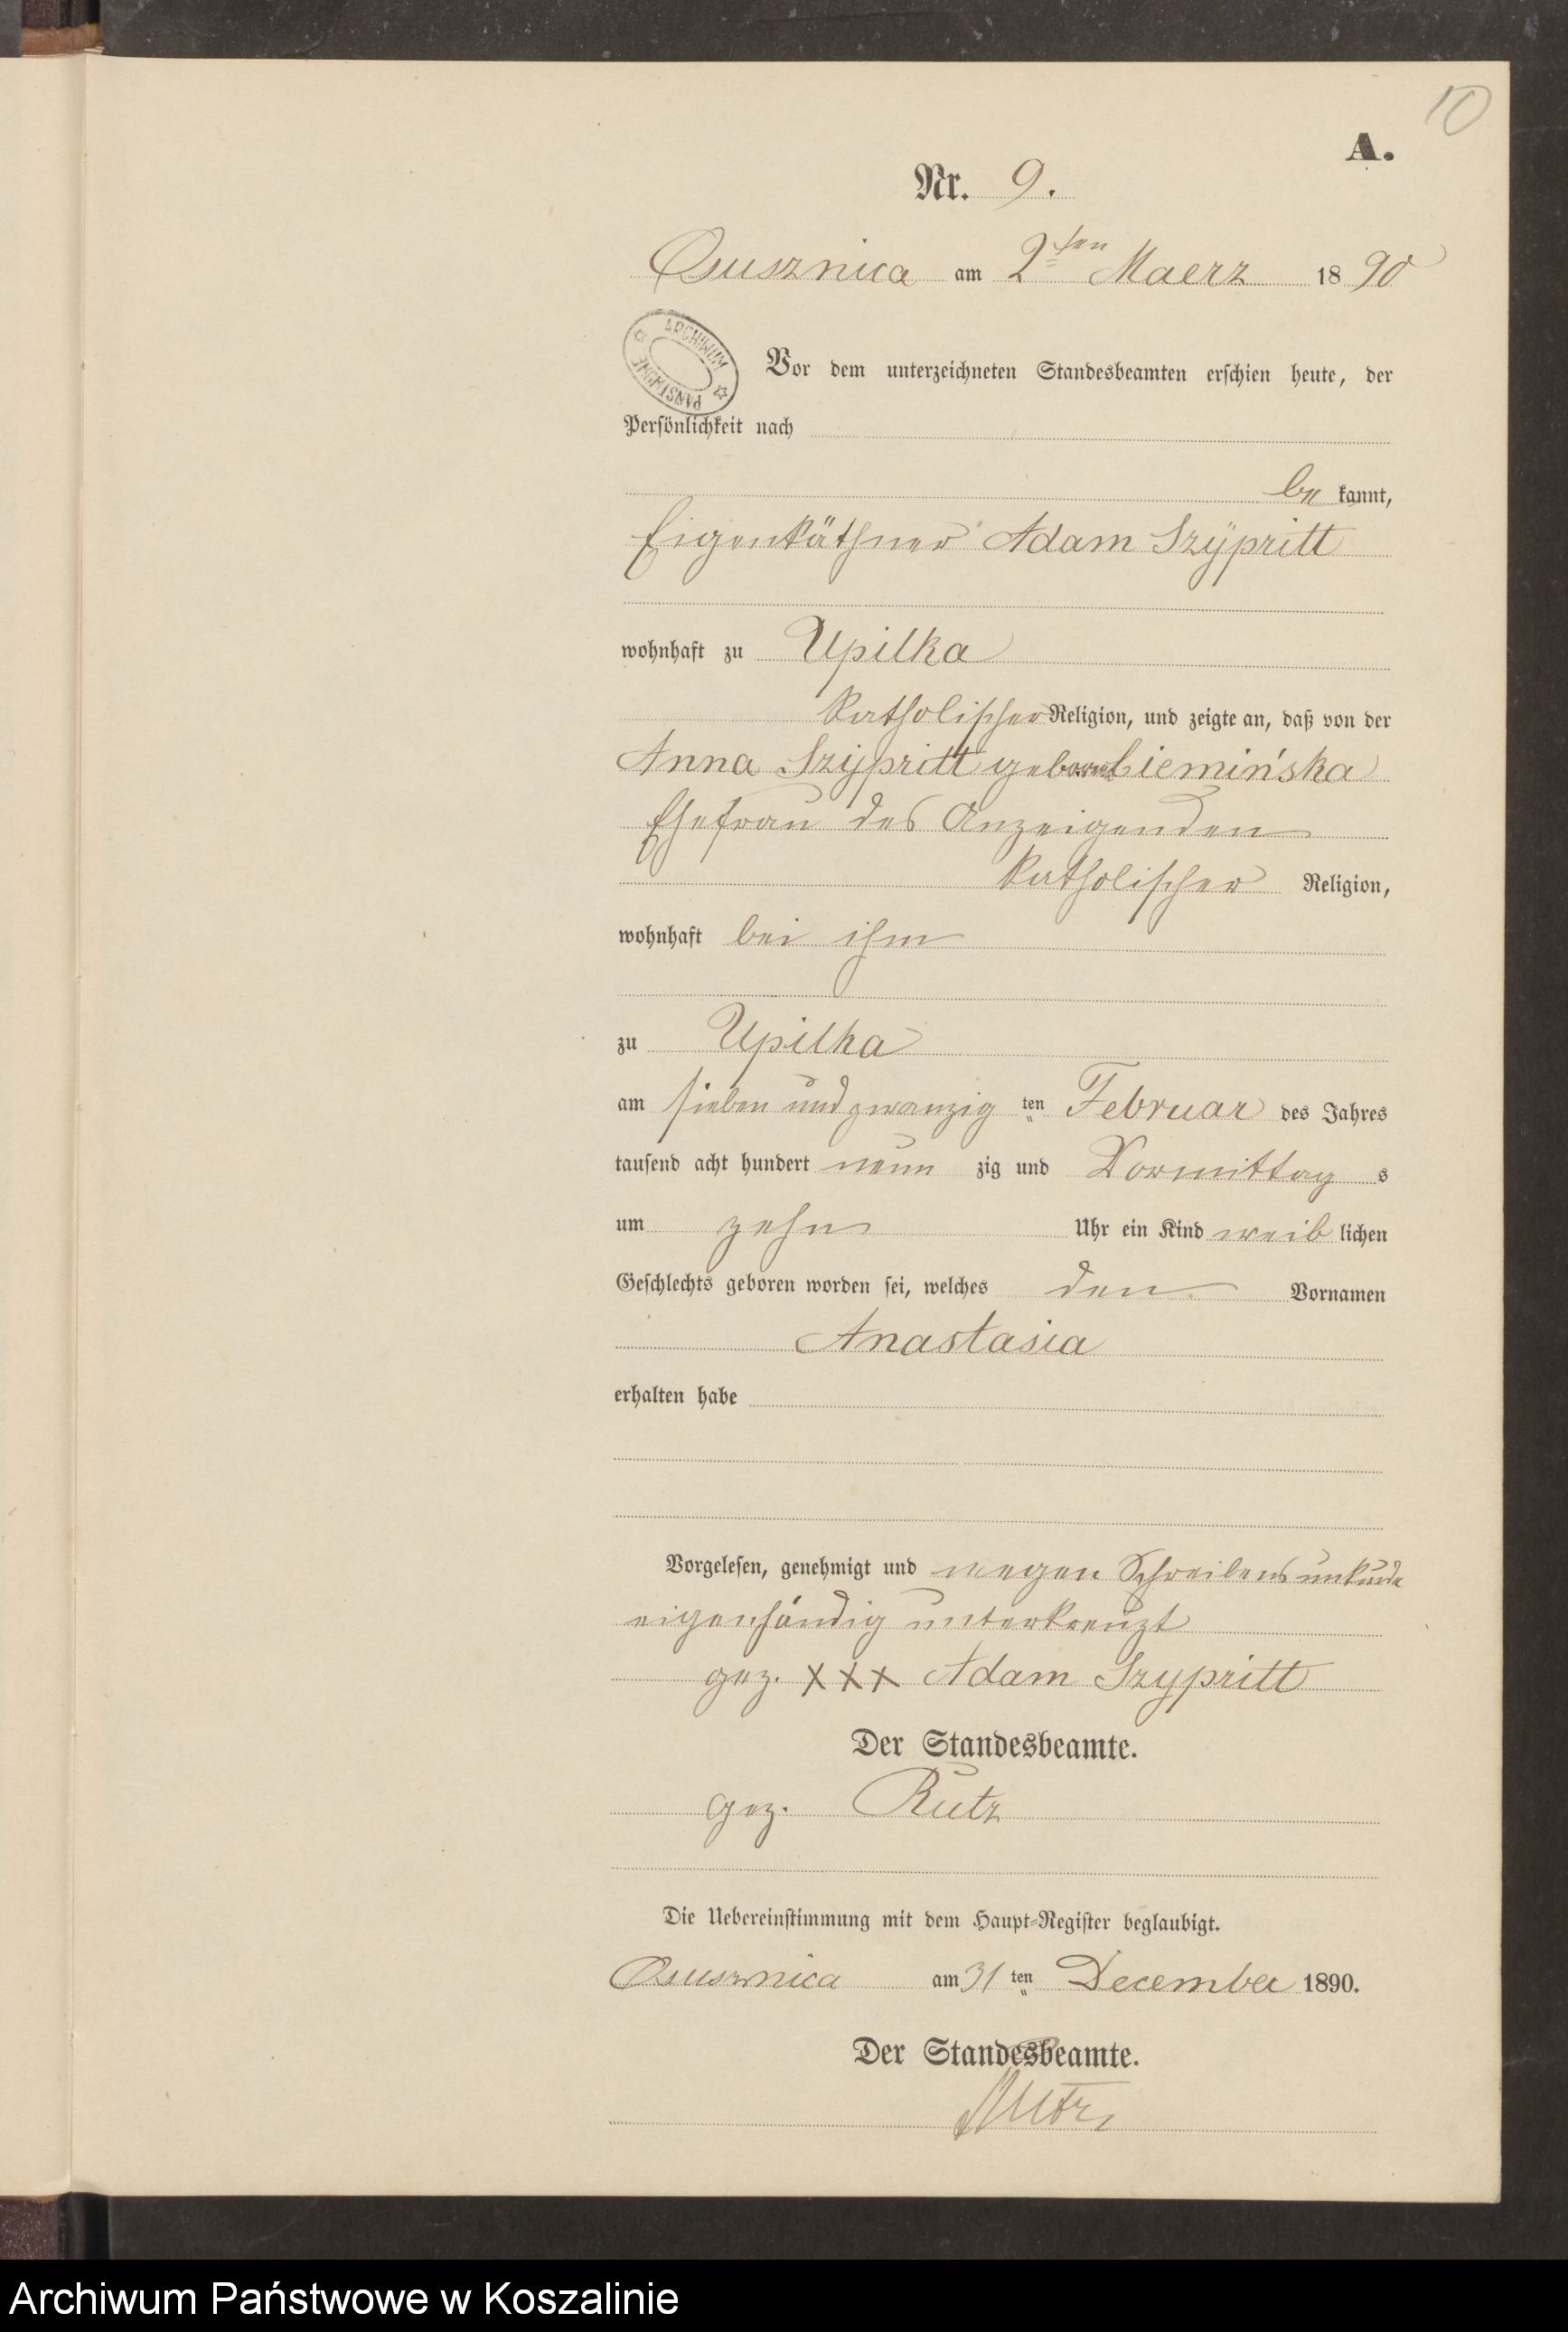 10
A.
Nr. 9.
Ossusznica am 2ten Maerz 1890
ARCHIWUM PAŃSTWOWE
Vor dem unterzeichneten Standesbeamten erschien heute, der
Persönlichkeit nach
bekannt,
Eigenkäthner Adam Szÿpritt
wohnhaft zu Upilka
katholischer Religion, und zeigte an, daß von der
Anna Szÿpritt geborne Ciemińska
Ehefrau des Anzeigenden
katholischer Religion,
wohnhaft bei ihm
zu Upilka
am sieben und zwanzig ten Februar des Jahres
tausend acht hundert neun zig und Vormittag s
um zehn Uhr ein Kind weib lichen
Geschlechts geboren worden sei, welches den Vornamen
Anastasia
erhalten habe
Vorgelesen, genehmigt und wegen Schreibensunkunde
eigenhändig unterkreuzt
gez. XXX Adam Szypritt
Der Standesbeamte.
gez. Rutz
Die Uebereinstimmung mit dem Haupt-Register beglaubigt.
am 31 ten December 1890.
Der Standesbeamte.
Rutz
Archiwum Państwowe w Koszalinie